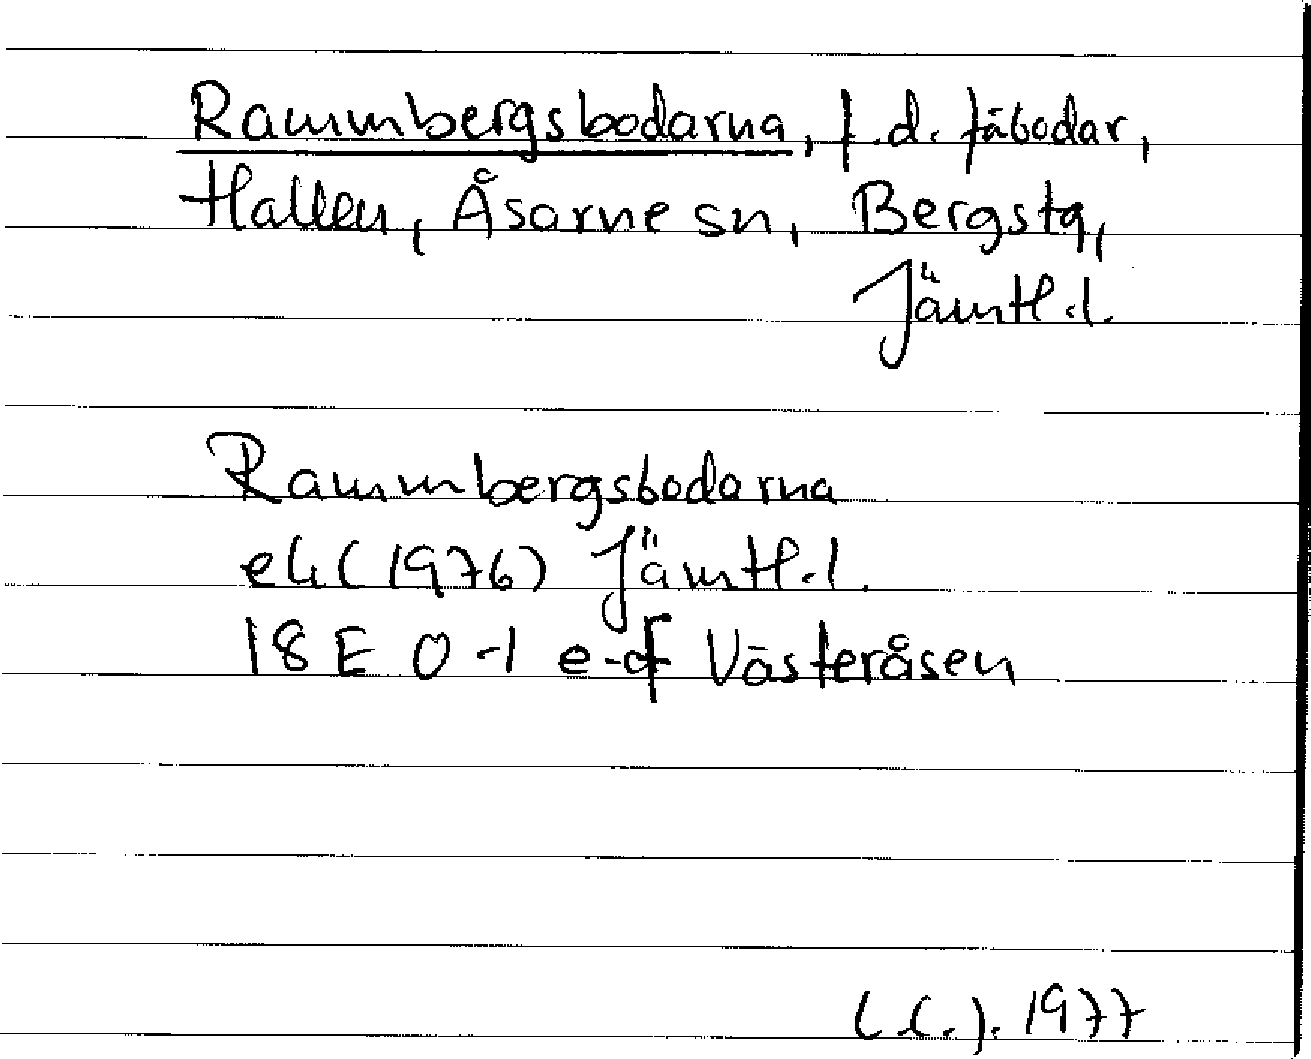 Rammbergsbodarna, f.d. fäbodar,
Hallen, Åsarne sn, Bergs tg,
Jämtl.l.
Rammbergsbodarna
ek (1976) Jämtl.l.
18 E 0-1 e-f Västeråsen
1977